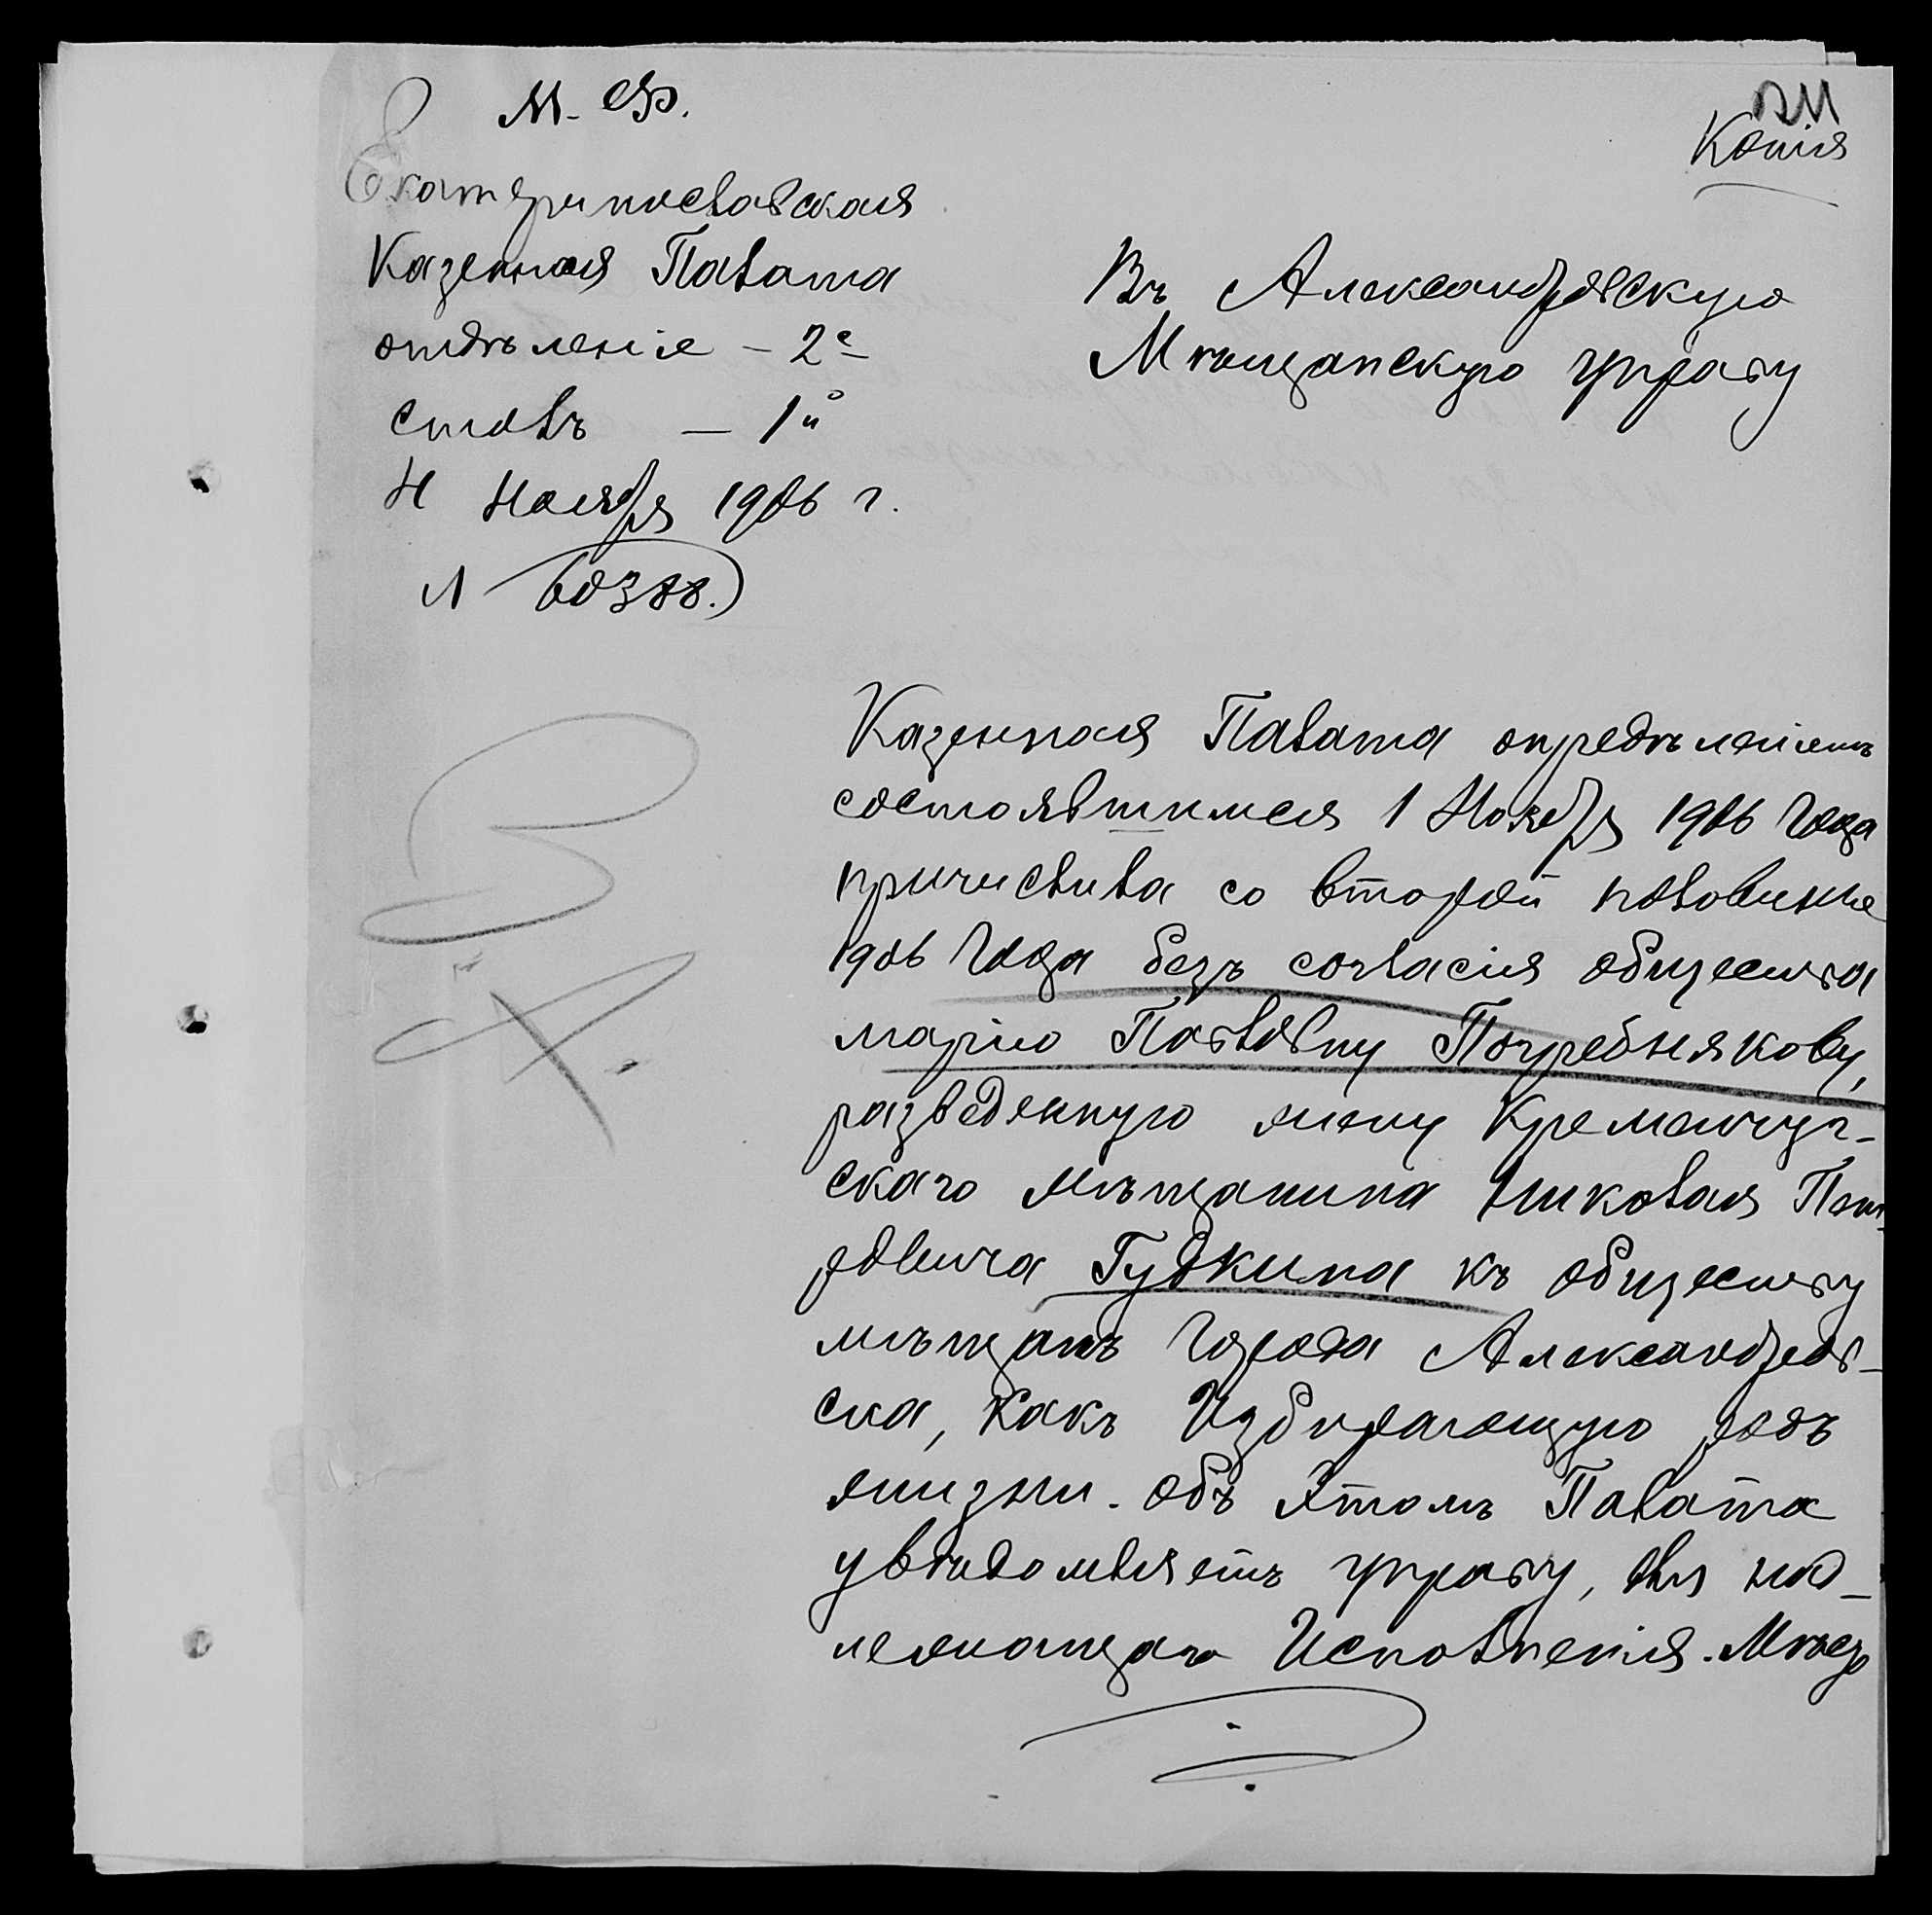 М. Ф.
Копія
Екатеринославская
Казенная Палата
отдѣленіе – 2е
столъ – 1й
Ноября 1906 г.
Въ Александровскую
Мѣщанскую управу
Казенная Палата опредѣленіемъ
состоявшимся 1 Ноября 1906 года
причислила со второй половины
1906 года безъ согласія общества
марію Павловну Погребнякову,
разведенную жену Кременчуг-
скаго мѣщанина Николая Пет-
ровича Гудкина къ обществу
мѣщанъ города Александров-
ска, какъ Избирающую родъ
жизни. объ Этомъ Палата
увѣдомляетъ управу, для над-
лежащаго Исполненія.